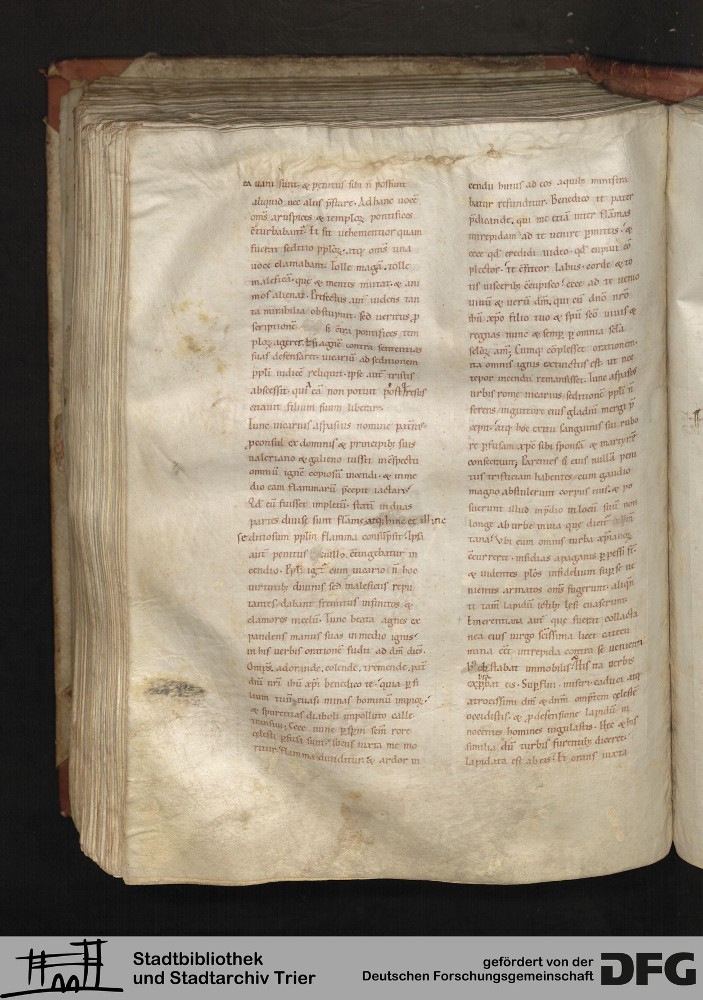 ta uani sunt. & penitus sibi n̄ possunt
aliquid nec aliis p̄stare. Ad hanc uocē
om̄s aruspices & temploꝝ pontifices
cturbabant̄. Et fit uehementior quam
fuerat seditio pploꝝ. atq; om̄s una
uoce clamabant. Tolle magā. tolle
maleficā. que & mentes mutat. & ani
mos alienat. Prefectus aut̄ uidens tan
ta mirabilia obstupuit. sed ueritus ꝓ
scriptionē
ploꝝ ageret. & si agnē contra sententias
suas defensaret. uicariū ad seditionem
ppli iudicē reliquit. ipse aut̄ tristis
abscessit. qui eā non potuit post resus
citatū filium suum liberare.
Tunc uicarius aspasius nomine
pconsul ex dominis & principib; suis
ualeriano & galieno iussit in cspectu
omniū ignē copiosū incendi. & in me
dio eam flammarū p̄cepit iactari.
Qd̄ cū fuisset impletū. statī in duas
partes diuise sunt flamme. atq; hinc et illinc
seditiosum pplm̄ flamma consūpsit. Ipsā
aut̄ penitus
cendio. eum uicario n̄ hoc
uirtutib; diuinis sed maleficiis repu
tantes. dabant fremitus infinitos &
clamores in celū. Tunc beata agnes ex
pandens manus suas in medio ignis
in his uerbis orationē fudit ad dn̄m dicēs.
Omp̄s. adorande. colende. tremende. pat̄
dn̄i nr̄i ihū xp̄i benedico te. quia ꝑ fi
lium tuū euasi minas hominū impioꝝ.
& spurcitias diaboli impolluto calle
transiui. Ecce nunc ꝑ sp̄m sc̄m rore
celesti ꝑfusa sum. focus iuxta me mo
ritur. flamma diuiditur. & ardor in
cendii huius ad eos a quib; ministra
batur refunditur. Benedico te pater
p̄dicande. qui me etiā inter flāmas
intrepidam ad te uenire ꝑmittis. &
ecce qd̄ credidi uideo. qd̄
plector. Te cfiteor labiis. corde & to
tis uisceribus ccupisco. ecce ad te uenio
uiuū & uerū dm̄. qui cū dn̄o nr̄o
ihū xp̄o filio tuo & spū sc̄o uiuis &
regnas nunc & semp̄ ꝑ omnia sc̄la
sc̄loꝝ am̄. Cumq; cplesset orationem.
ita omnis ignis extinctus est ut nec
tepor incendii remansisset. Tunc aspasius
urbis rome uicarius seditionē ppli n̄
ferens. in gutture eius gladiū mergi p̄
cepit. atq; hoc exitu sanguinis sui rubo
re ꝑfusam xp̄c sibi sponsā & martyrē
consecrauit. Parentes ū eius nullā peni
tus tristiciam habentes. cum gaudio
magno abstulerunt corpus eius. & po
suerunt illud in p̄dio in locū suū non
longe ab urbe in uia que dicit̄
tana. Vbi cum omnis turba xp̄ianoꝝ
ccurreret. insidias a paganis ꝑpessi st̄.
& uidentes plōs infidelium sup̄ se ue
nientes armatos om̄s fugerunt. aliqn̄
ti tam̄ lapidū ictib; lesi euaserunt.
Emerentiana aut̄ que fuerat collacta
nea eius uirgo sc̄issima licet catecu
mina
stabat immobilis. His
exꝓbat eis. Supflui. miseri. caduci. atq;
atrocissimi dm̄ & dn̄m omp̄tem celestē
occidistis. & ꝓ defensione lapidū in
nocentes homines iugulastis. Hec & his
similia dū turbis furentib; diceret.
lapidata est ab eis. Et orans iuxta
Stadtbibliothek
und Stadtarchiv Trier
gefördert von der
Deutschen Forschungsgemeinschaft
DFG